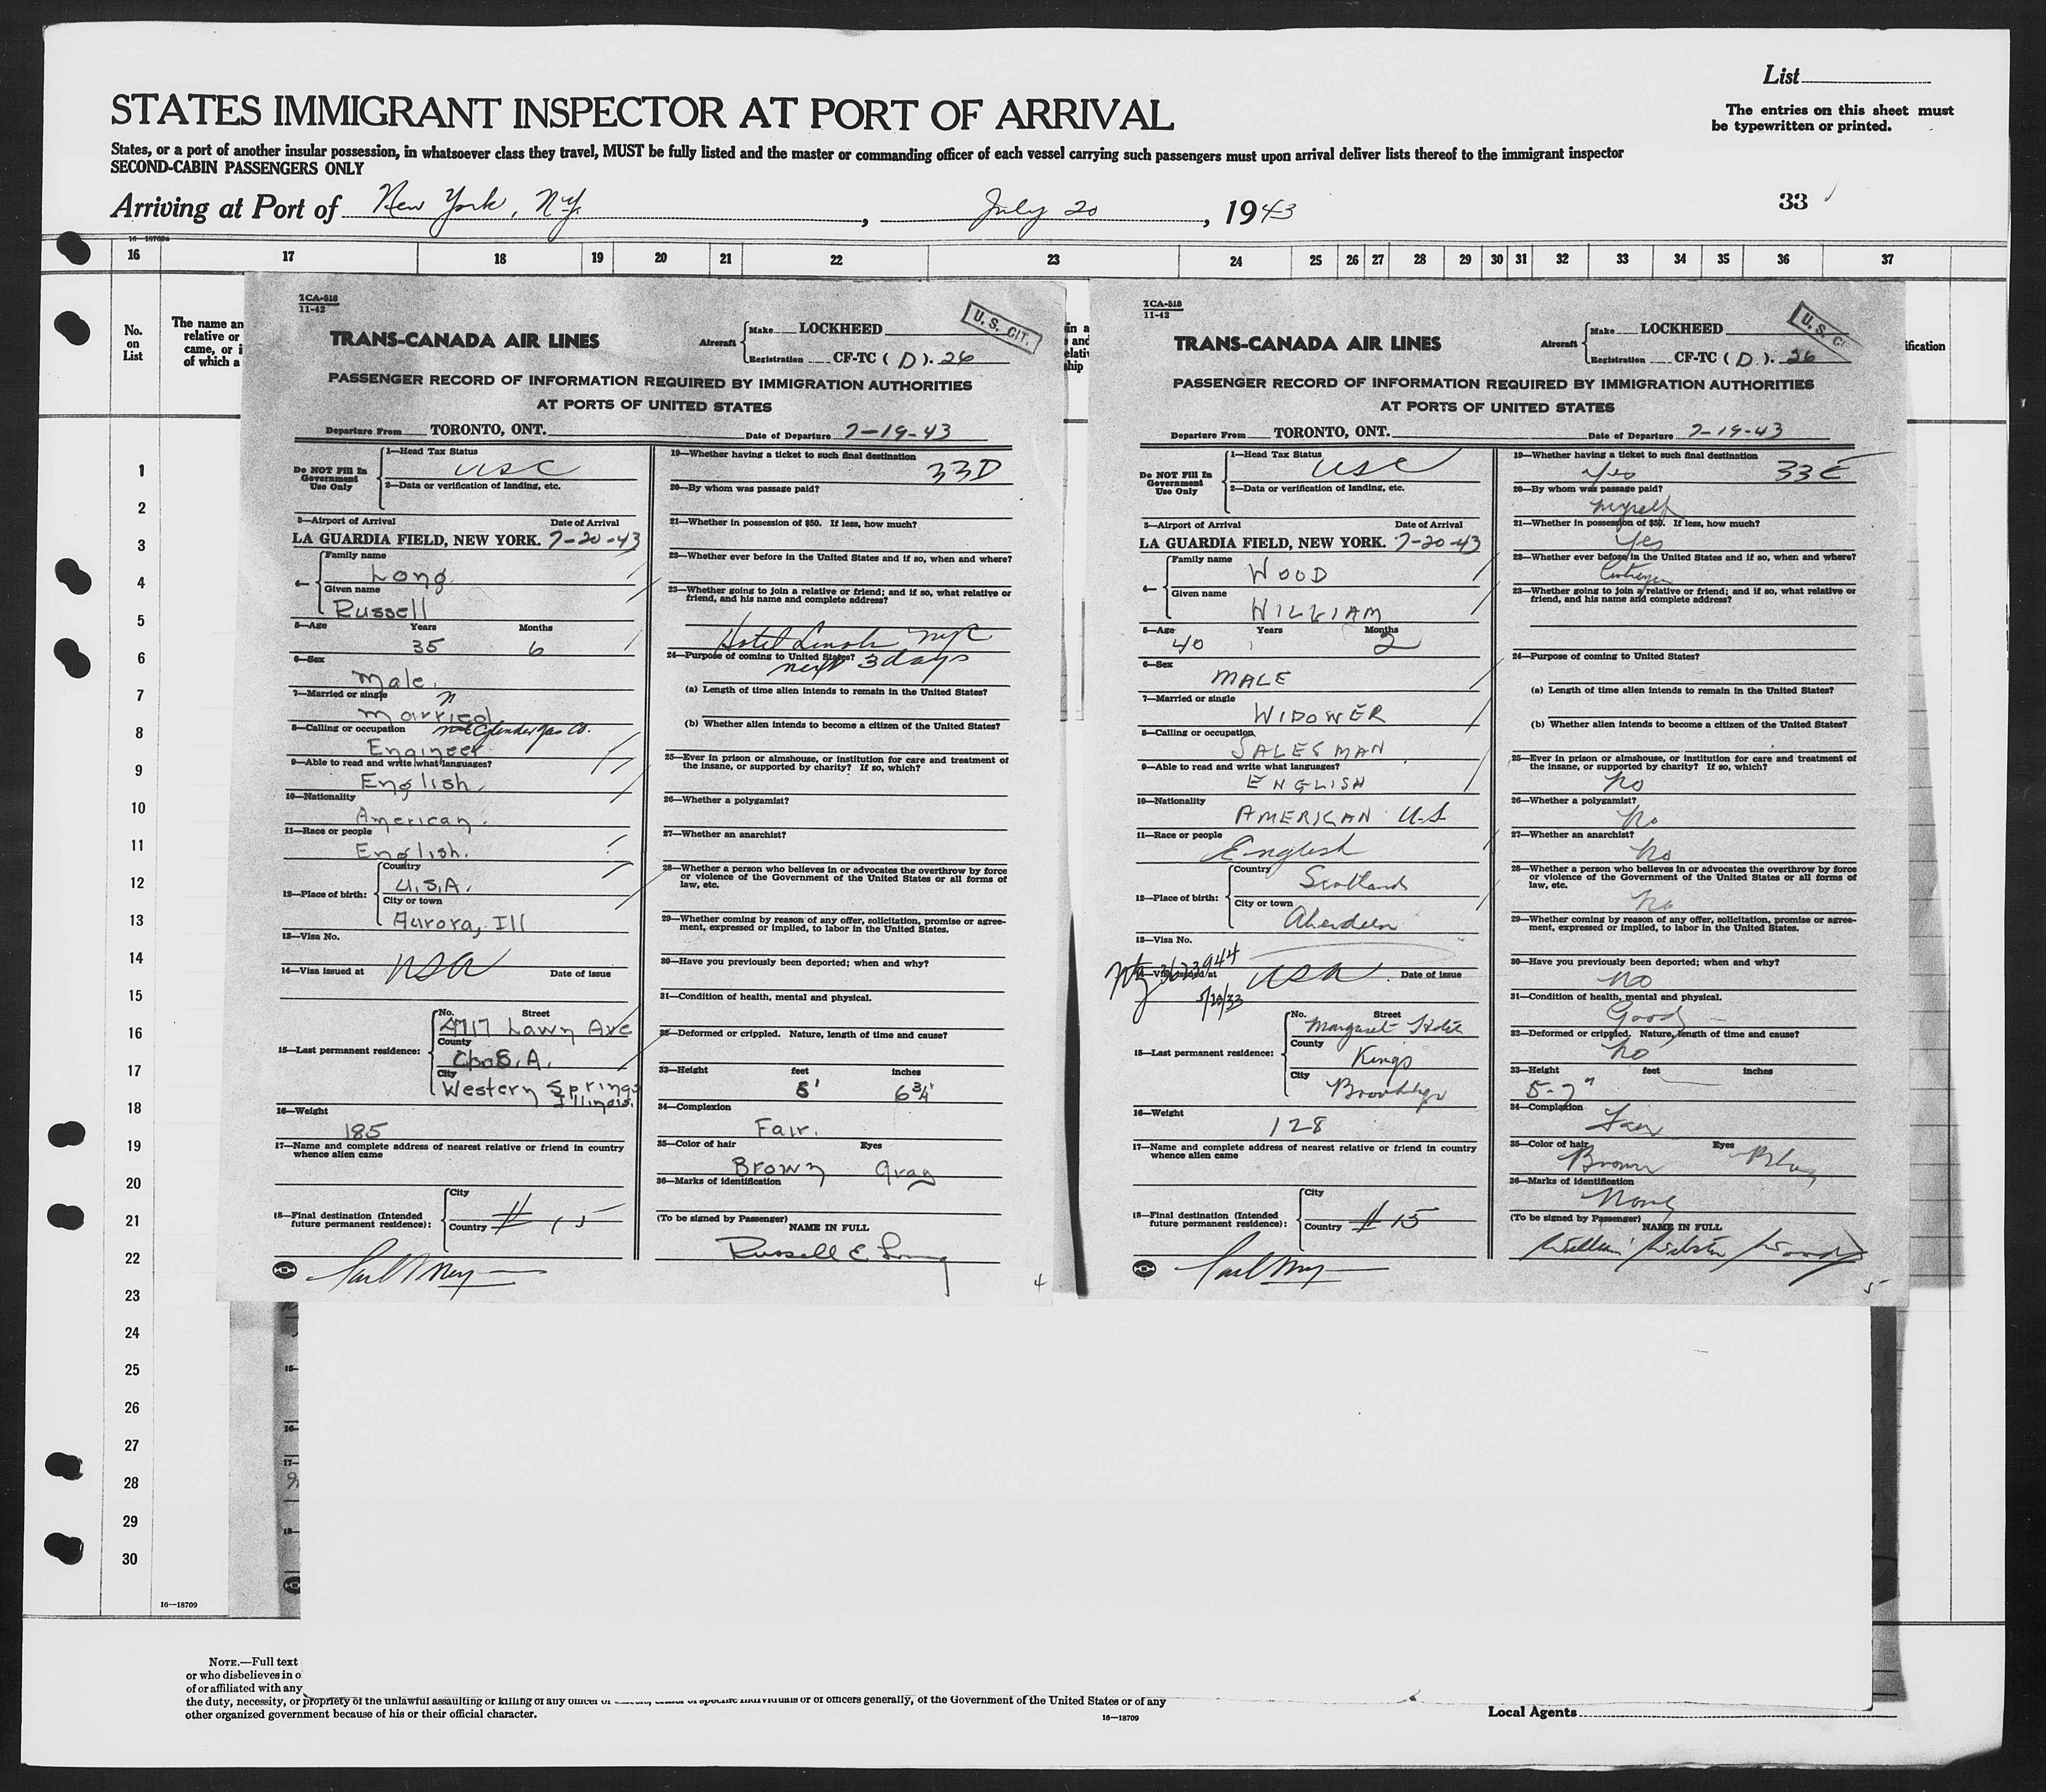 List
STATES IMMIGRANT INSPECTOR AT PORT OF ARRIVAL
The entries on this sheet must
be typewritten or printed.
States, or a port of another insular possession, in whatsoever class they travel, MUST be fully listed and the master or commanding officer of each vessel carrying such passengers must upon arrival deliver lists thereof to the immigrant inspector
SECOND-CABIN PASSENGERS ONLY
Arriving at Port of New York, N.Y. , July 20 , 1943
33
16—18709a
16 17 18 19 20 21 22 23 24 25 26 27 28 29 30 31 32 33 34 35 36 37
No.
on
List
The name an
relative or
came, or i
of which a
TCA-518
11-42
U. S. CIT.
TRANS-CANADA AIR LINES
Aircraft
Make LOCKHEED
Registration CF-TC ( D ). 26
PASSENGER RECORD OF INFORMATION REQUIRED BY IMMIGRATION AUTHORITIES
AT PORTS OF UNITED STATES
Departure From TORONTO, ONT. Date of Departure 7-19-43
Do NOT Fill In
Government
Use Only
1—Head Tax Status
USC
2—Data or verification of landing, etc.
3—Airport of Arrival Date of Arrival
LA GUARDIA FIELD, NEW YORK. 7-20-43
4— Family name
Long
Given name
Russell
5—Age Years Months
35 6
6—Sex
Male.
7—Married or single
Married
8—Calling or occupation
Engineer
9—Able to read and write what languages?
English.
10—Nationality
American.
11—Race or people
English.
12—Place of birth: Country
U.S.A.
City or town
Aurora, Ill
13—Visa No.
14—Visa issued at USA Date of issue
15—Last permanent residence:
No. Street
4717 Lawn Ave
County
City
Western Springs
Illinois.
16—Weight
185
17—Name and complete address of nearest relative or friend in country
whence alien came
18—Final destination (Intended
future permanent residence):
City
Country # 15
19—Whether having a ticket to such final destination
33D
20—By whom was passage paid?
21—Whether in possession of $50. If less, how much?
22—Whether ever before in the United States and if so, when and where?
23—Whether going to join a relative or friend; and if so, what relative or
friend, and his name and complete address?
Hotel Lincoln NYC
24—Purpose of coming to United States?
next 3 days
(a) Length of time alien intends to remain in the United States?
(b) Whether alien intends to become a citizen of the United States?
25—Ever in prison or almshouse, or institution for care and treatment of
the insane, or supported by charity? If so, which?
26—Whether a polygamist?
27—Whether an anarchist?
28—Whether a person who believes in or advocates the overthrow by force
or violence of the Government of the United States or all forms of
law, etc.
29—Whether coming by reason of any offer, solicitation, promise or agree-
ment, expressed or implied, to labor in the United States.
30—Have you previously been deported; when and why?
31—Condition of health, mental and physical.
32—Deformed or crippled. Nature, length of time and cause?
33—Height feet inches
5' 6¾"
34—Complexion
Fair.
35—Color of hair Eyes
Brown Gray
36—Marks of identification
(To be signed by Passenger)
NAME IN FULL
Russell E Long
4
TCA-518
11-42
TRANS-CANADA AIR LINES
Aircraft
Make LOCKHEED
Registration CF-TC ( D ). 26
PASSENGER RECORD OF INFORMATION REQUIRED BY IMMIGRATION AUTHORITIES
AT PORTS OF UNITED STATES
Departure From TORONTO, ONT. Date of Departure 7-19-43
Do NOT Fill In
Government
Use Only
1—Head Tax Status
USC
2—Data or verification of landing, etc.
3—Airport of Arrival Date of Arrival
LA GUARDIA FIELD, NEW YORK. 7-20-43
4— Family name
WOOD
Given name
WILLIAM
5—Age Years Months
40 2
6—Sex
MALE
7—Married or single
WIDOWER
8—Calling or occupation
SALESMAN
9—Able to read and write what languages?
ENGLISH
10—Nationality
AMERICAN U-S
11—Race or people
English
12—Place of birth: Country
Scotland
City or town
Aberdeen
13—Visa No.
14—Visa issued at USA Date of issue
15—Last permanent residence:
No. Street
Margaret Hotel
County
Kings
City
Brooklyn
16—Weight
128
17—Name and complete address of nearest relative or friend in country
whence alien came
18—Final destination (Intended
future permanent residence):
City
Country # 15
19—Whether having a ticket to such final destination
Yes 33E
20—By whom was passage paid?
Myself
21—Whether in possession of $50. If less, how much?
Yes
22—Whether ever before in the United States and if so, when and where?
Citizen
23—Whether going to join a relative or friend; and if so, what relative or
friend, and his name and complete address?
24—Purpose of coming to United States?
(a) Length of time alien intends to remain in the United States?
(b) Whether alien intends to become a citizen of the United States?
25—Ever in prison or almshouse, or institution for care and treatment of
the insane, or supported by charity? If so, which?
No
26—Whether a polygamist?
No
27—Whether an anarchist?
No
28—Whether a person who believes in or advocates the overthrow by force
or violence of the Government of the United States or all forms of
law, etc.
No
29—Whether coming by reason of any offer, solicitation, promise or agree-
ment, expressed or implied, to labor in the United States.
30—Have you previously been deported; when and why?
No
31—Condition of health, mental and physical.
Good
32—Deformed or crippled. Nature, length of time and cause?
No
33—Height feet inches
5-7"
34—Complexion
Fair
35—Color of hair Eyes
Brown Blue
36—Marks of identification
None
(To be signed by Passenger)
NAME IN FULL
William Webster Wood
5
ification
1
2
3
4
5
6
7
8
9
10
11
12
13
14
15
16
17
18
19
20
21
22
23
24
25
26
27
28
29
30
16—18709
NOTE.—Full text
or who disbelieves in o
of or affiliated with any
the duty, necessity, or propriety of the unlawful assaulting or killing of any officer or specific individuals or of officers generally, of the Government of the United States or of any
other organized government because of his or their official character.
16—18709
Local Agents